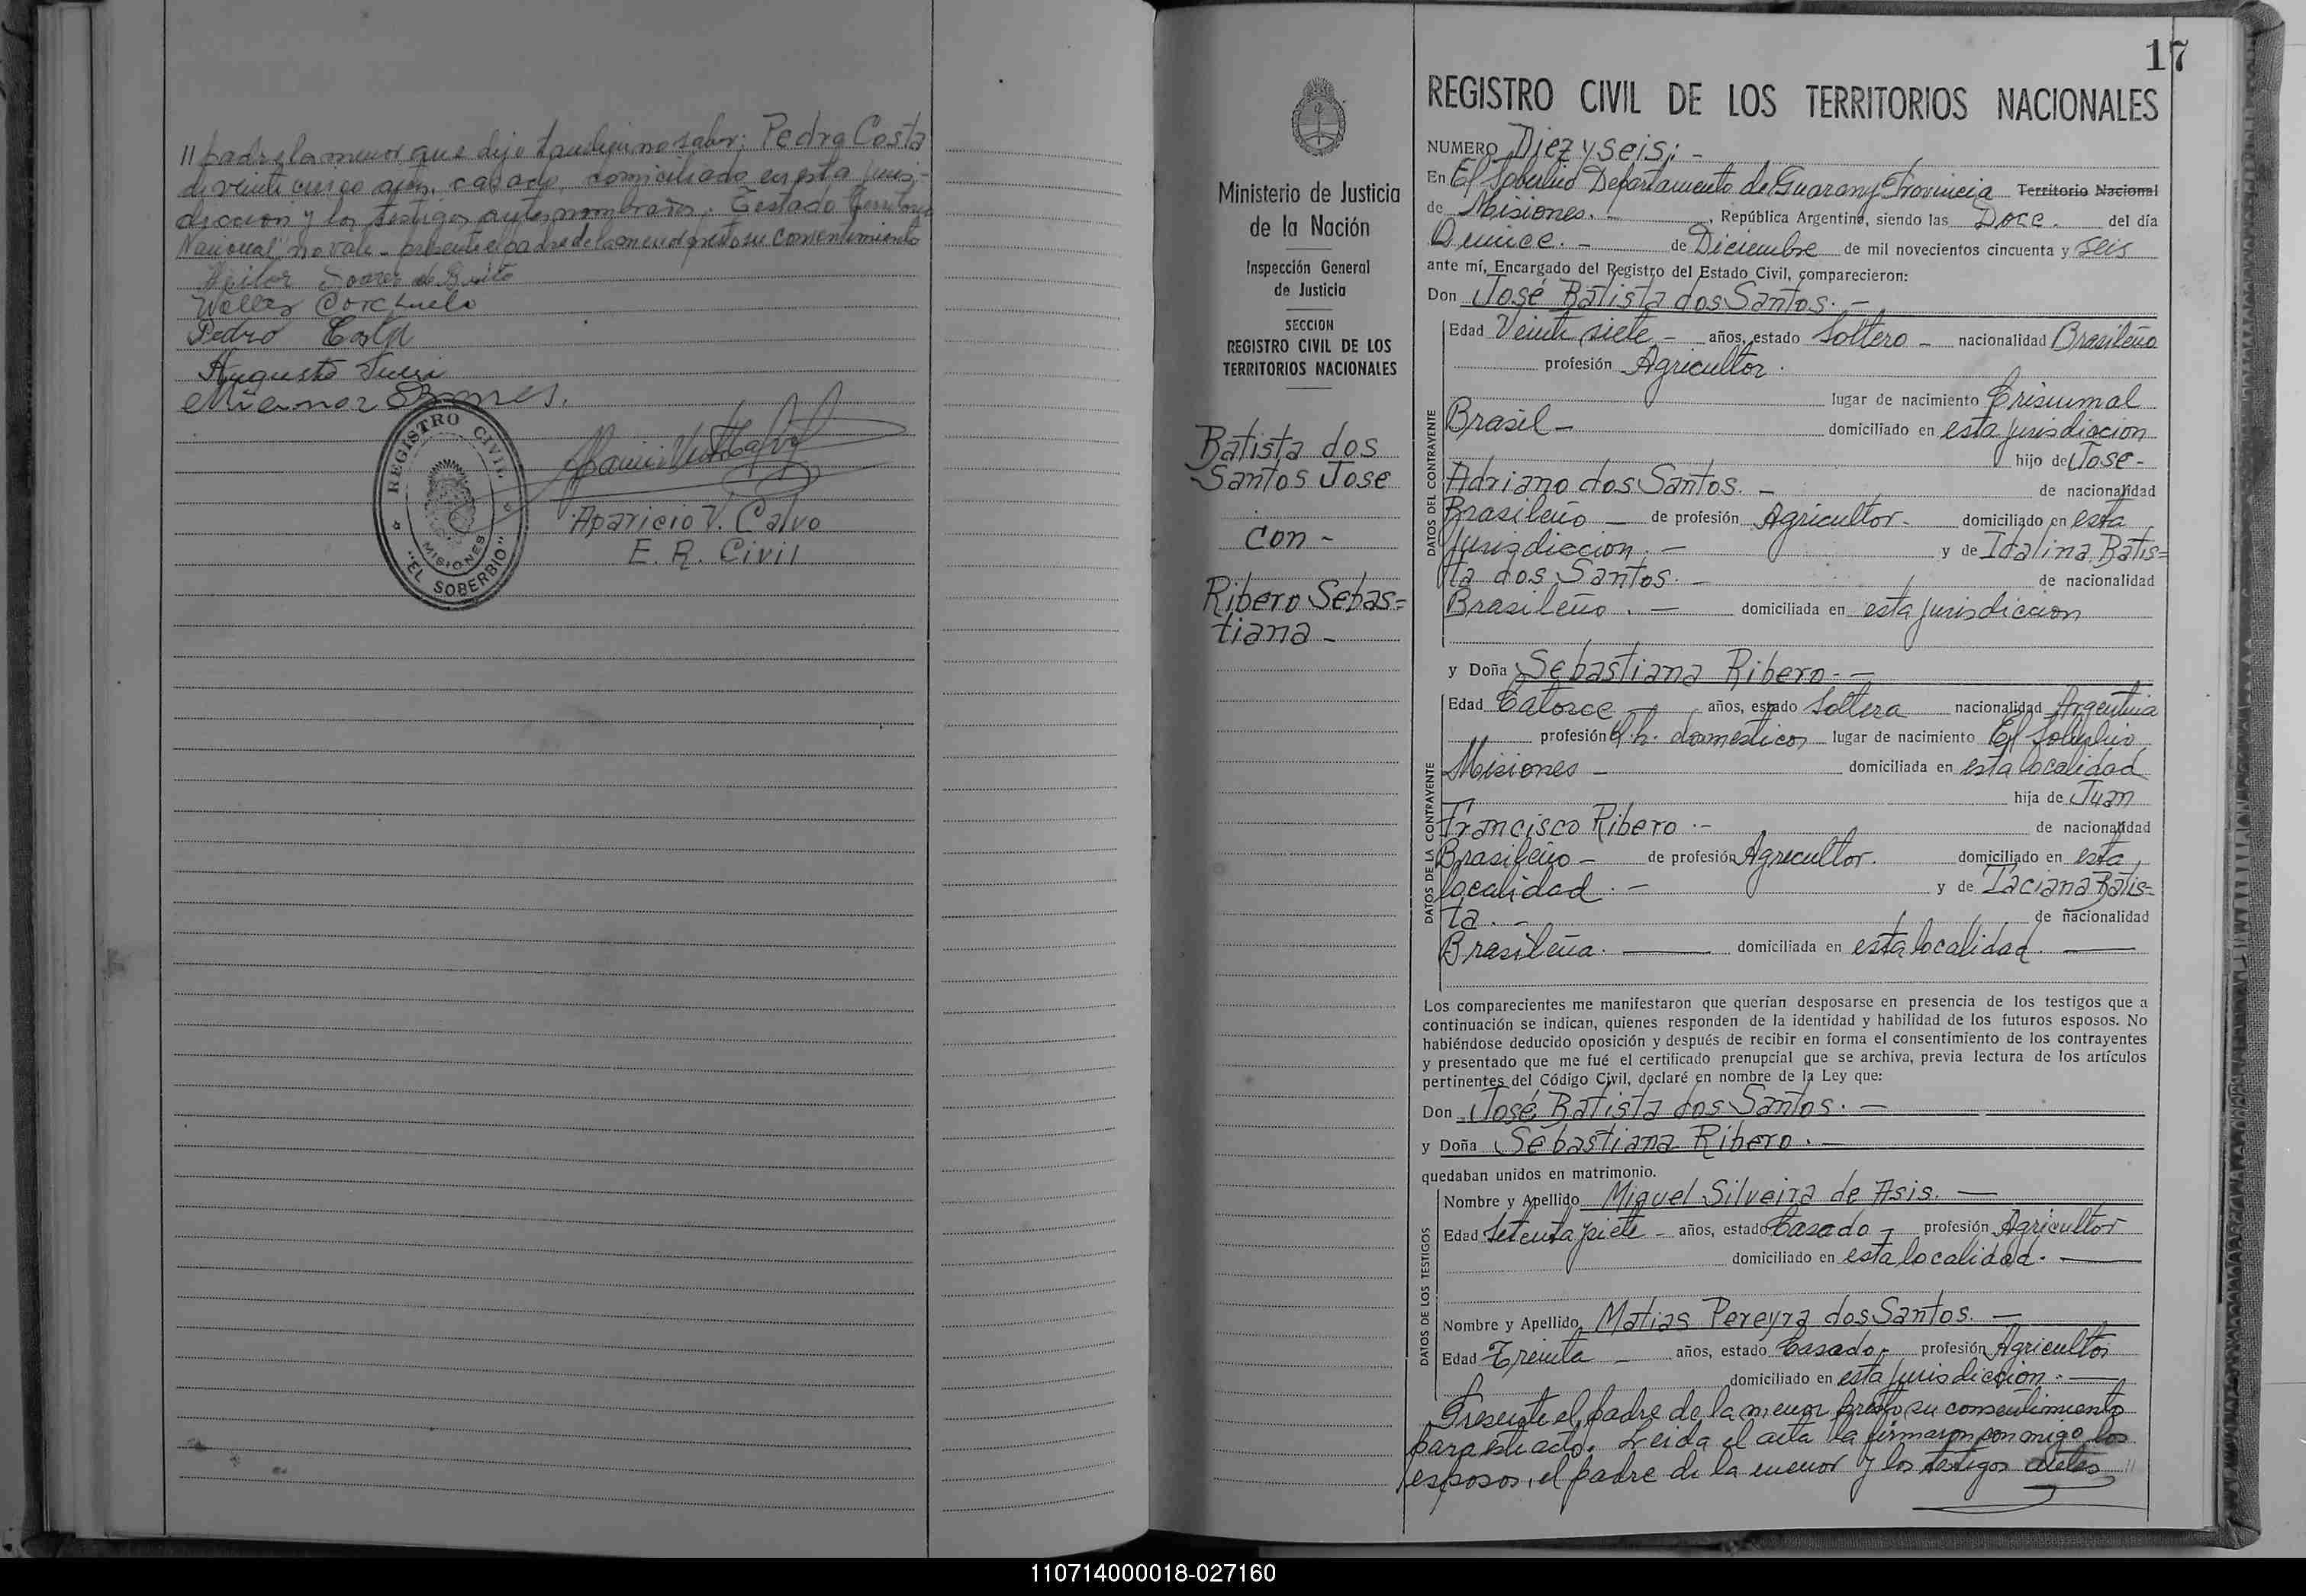 // padre la menor que dijo tambien no saber; Pedro Costa
de veinte cinco años, casado, domiciliado en esta juris-
diccion y los testigos antes nombrados. Testado Territorio
Nacional no vale - presente el padre de la menor presto su consentimiento
Heitor Soares de Brito
Pedro Costa
Augusto
REGISTRO CIVIL
MISIONES
"EL SOBERBIO"
Aparicio V. Calvo
E. R. Civil
17
Ministerio de Justicia
de la Nación
Inspección General
de Justicia
SECCION
REGISTRO CIVIL DE LOS
TERRITORIOS NACIONALES
Batista dos
Santos Jose
con -
Ribero Sebas=
tiana -
REGISTRO CIVIL DE LOS TERRITORIOS NACIONALES
NUMERO Diez y seis; -
En El Soberbio Departamento de Guarany Provincia Territorio Nacional
de Misiones. - , República Argentina, siendo las Doce. del día
Quince. - de Diciembre de mil novecientos cincuenta y seis
ante mí, Encargado del Registro del Estado Civil, comparecieron:
Don José Batista dos Santos. -
DATOS DEL CONTRAYENTE
Edad Veinte siete - años, estado Soltero - nacionalidad Brasileño
profesión Agricultor.
lugar de nacimiento Crisiumal
Brasil - domiciliado en esta jurisdiccion
hijo de Jose -
Adriano dos Santos. - de nacionalidad
Brasileño - de profesión Agricultor - domiciliado en esta
jurisdiccion. - y de Idalina Batis=
ta dos Santos. - de nacionalidad
Brasileño. - domiciliada en esta jurisdiccion
y Doña Sebastiana Ribero. -
DATOS DE LA CONTRAYENTE
Edad Catorce años, estado Soltera nacionalidad Argentina
profesión q.h. domesticos lugar de nacimiento El Soberbio
Misiones - domiciliada en esta localidad
hija de Juan
Francisco Ribero. - de nacionalidad
Brasileño - de profesión Agricultor. domiciliado en esta
localidad. - y de Taciana Batis=
ta. - de nacionalidad
Brasileña. - domiciliada en esta localidad. -
Los comparecientes me manifestaron que querían desposarse en presencia de los testigos que a
continuación se indican, quienes responden de la identidad y habilidad de los futuros esposos. No
habiéndose deducido oposición y después de recibir en forma el consentimiento de los contrayentes
y presentado que me fué el certificado prenupcial que se archiva, previa lectura de los artículos
pertinentes del Código Civil, declaré en nombre de la Ley que:
Don José Batista dos Santos. -
y Doña Sebastiana Ribero. -
quedaban unidos en matrimonio.
DATOS DE LOS TESTIGOS
Nombre y Apellido Miguel Silveira de Asis. -
Edad Setenta siete - años, estado Casado - profesión Agricultor
domiciliado en esta localidad. -
Nombre y Apellido Matias Pereyra dos Santos. -
Edad Treinta - años, estado Casado - profesión Agricultor
domiciliado en esta jurisdiccion. -
Presente el padre de la menor presto su consentimiento
para este acto. Leida el acta la firmaron conmigo los
esposos, el padre de la menor y los testigos antes //
110714000018-027160